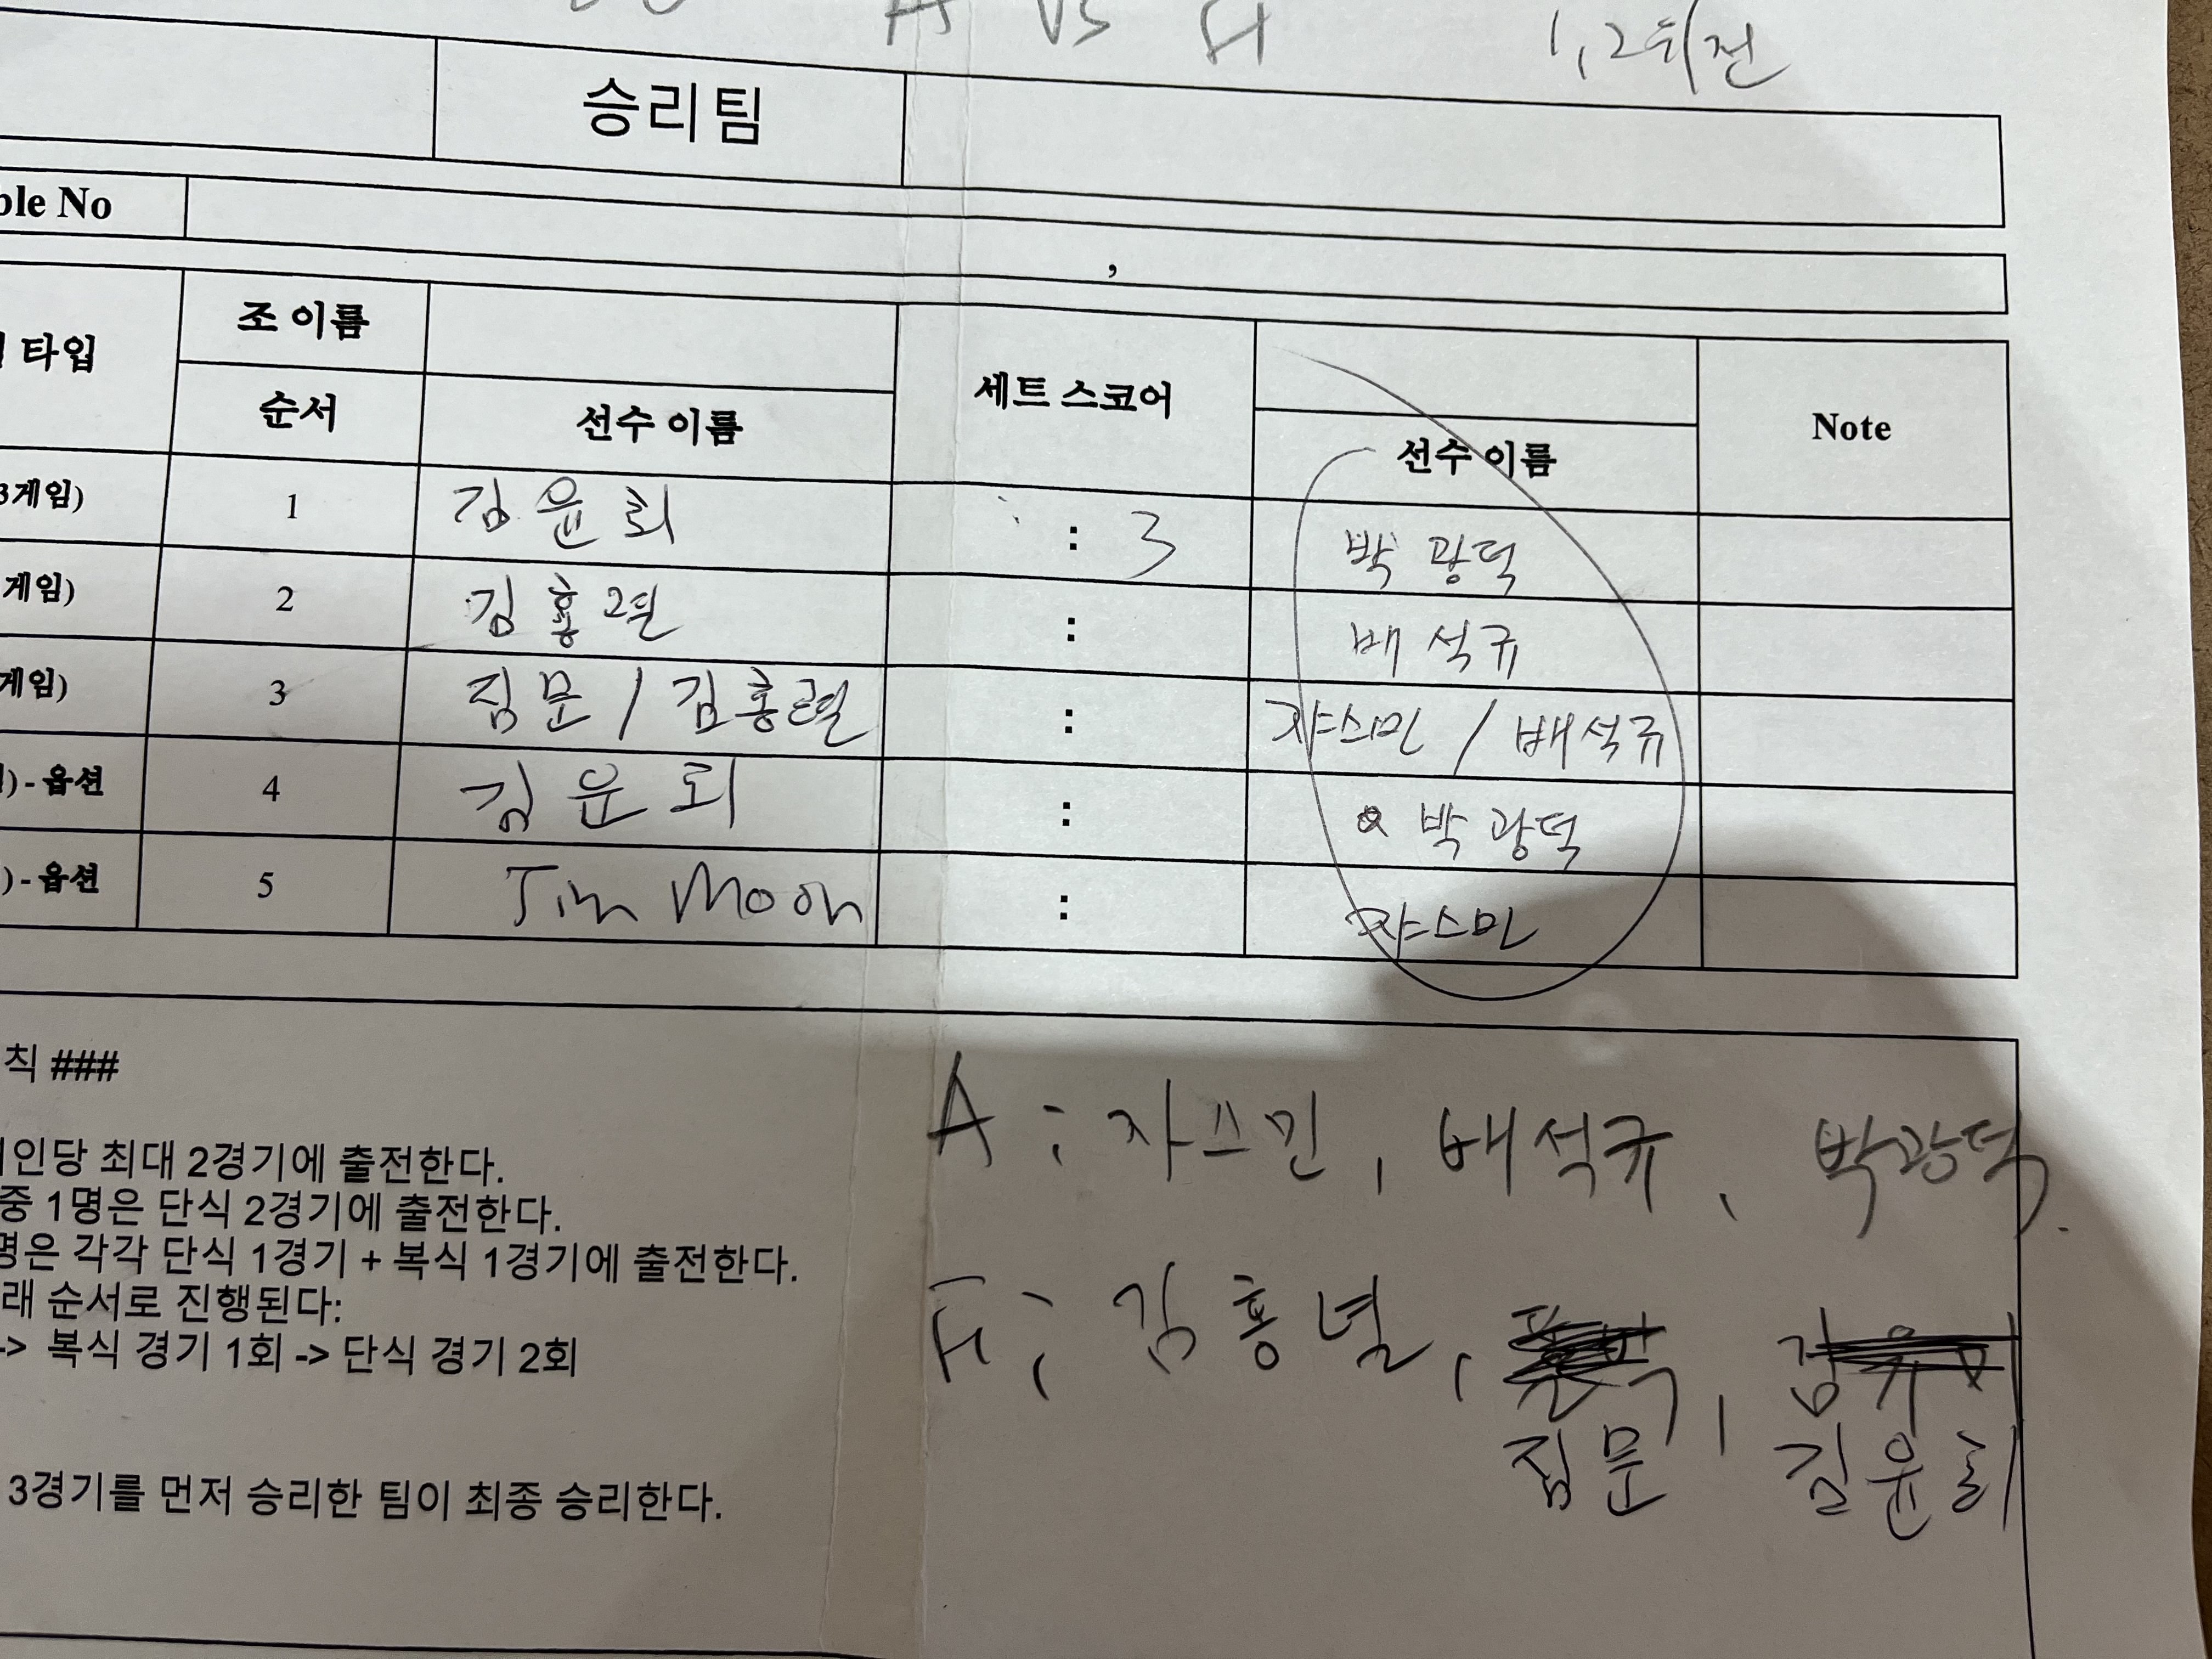 A VS 1,2위전
승리팀
ble No
,
타입 조 이름 세트 스코어 Note
순서 선수 이름 선수 이름
3게임) 1 김윤희 : 3 박광덕
게임) 2 김홍렬 : 배석규
게임) 3 짐문 / 김홍렬 : 쟈스민 / 배석규
) - 옵션 4 김윤희 : 박광덕
) - 옵션 5 Jin Moon : 쟈스민
칙 ###
인당 최대 2경기에 출전한다.
중 1명은 단식 2경기에 출전한다.
명은 각각 단식 1경기 + 복식 1경기에 출전한다.
래 순서로 진행된다:
-> 복식 경기 1회 -> 단식 경기 2회
3경기를 먼저 승리한 팀이 최종 승리한다.
A : 자스민, 배석규, 박광덕.
: 김홍녈,
짐문, 김윤희